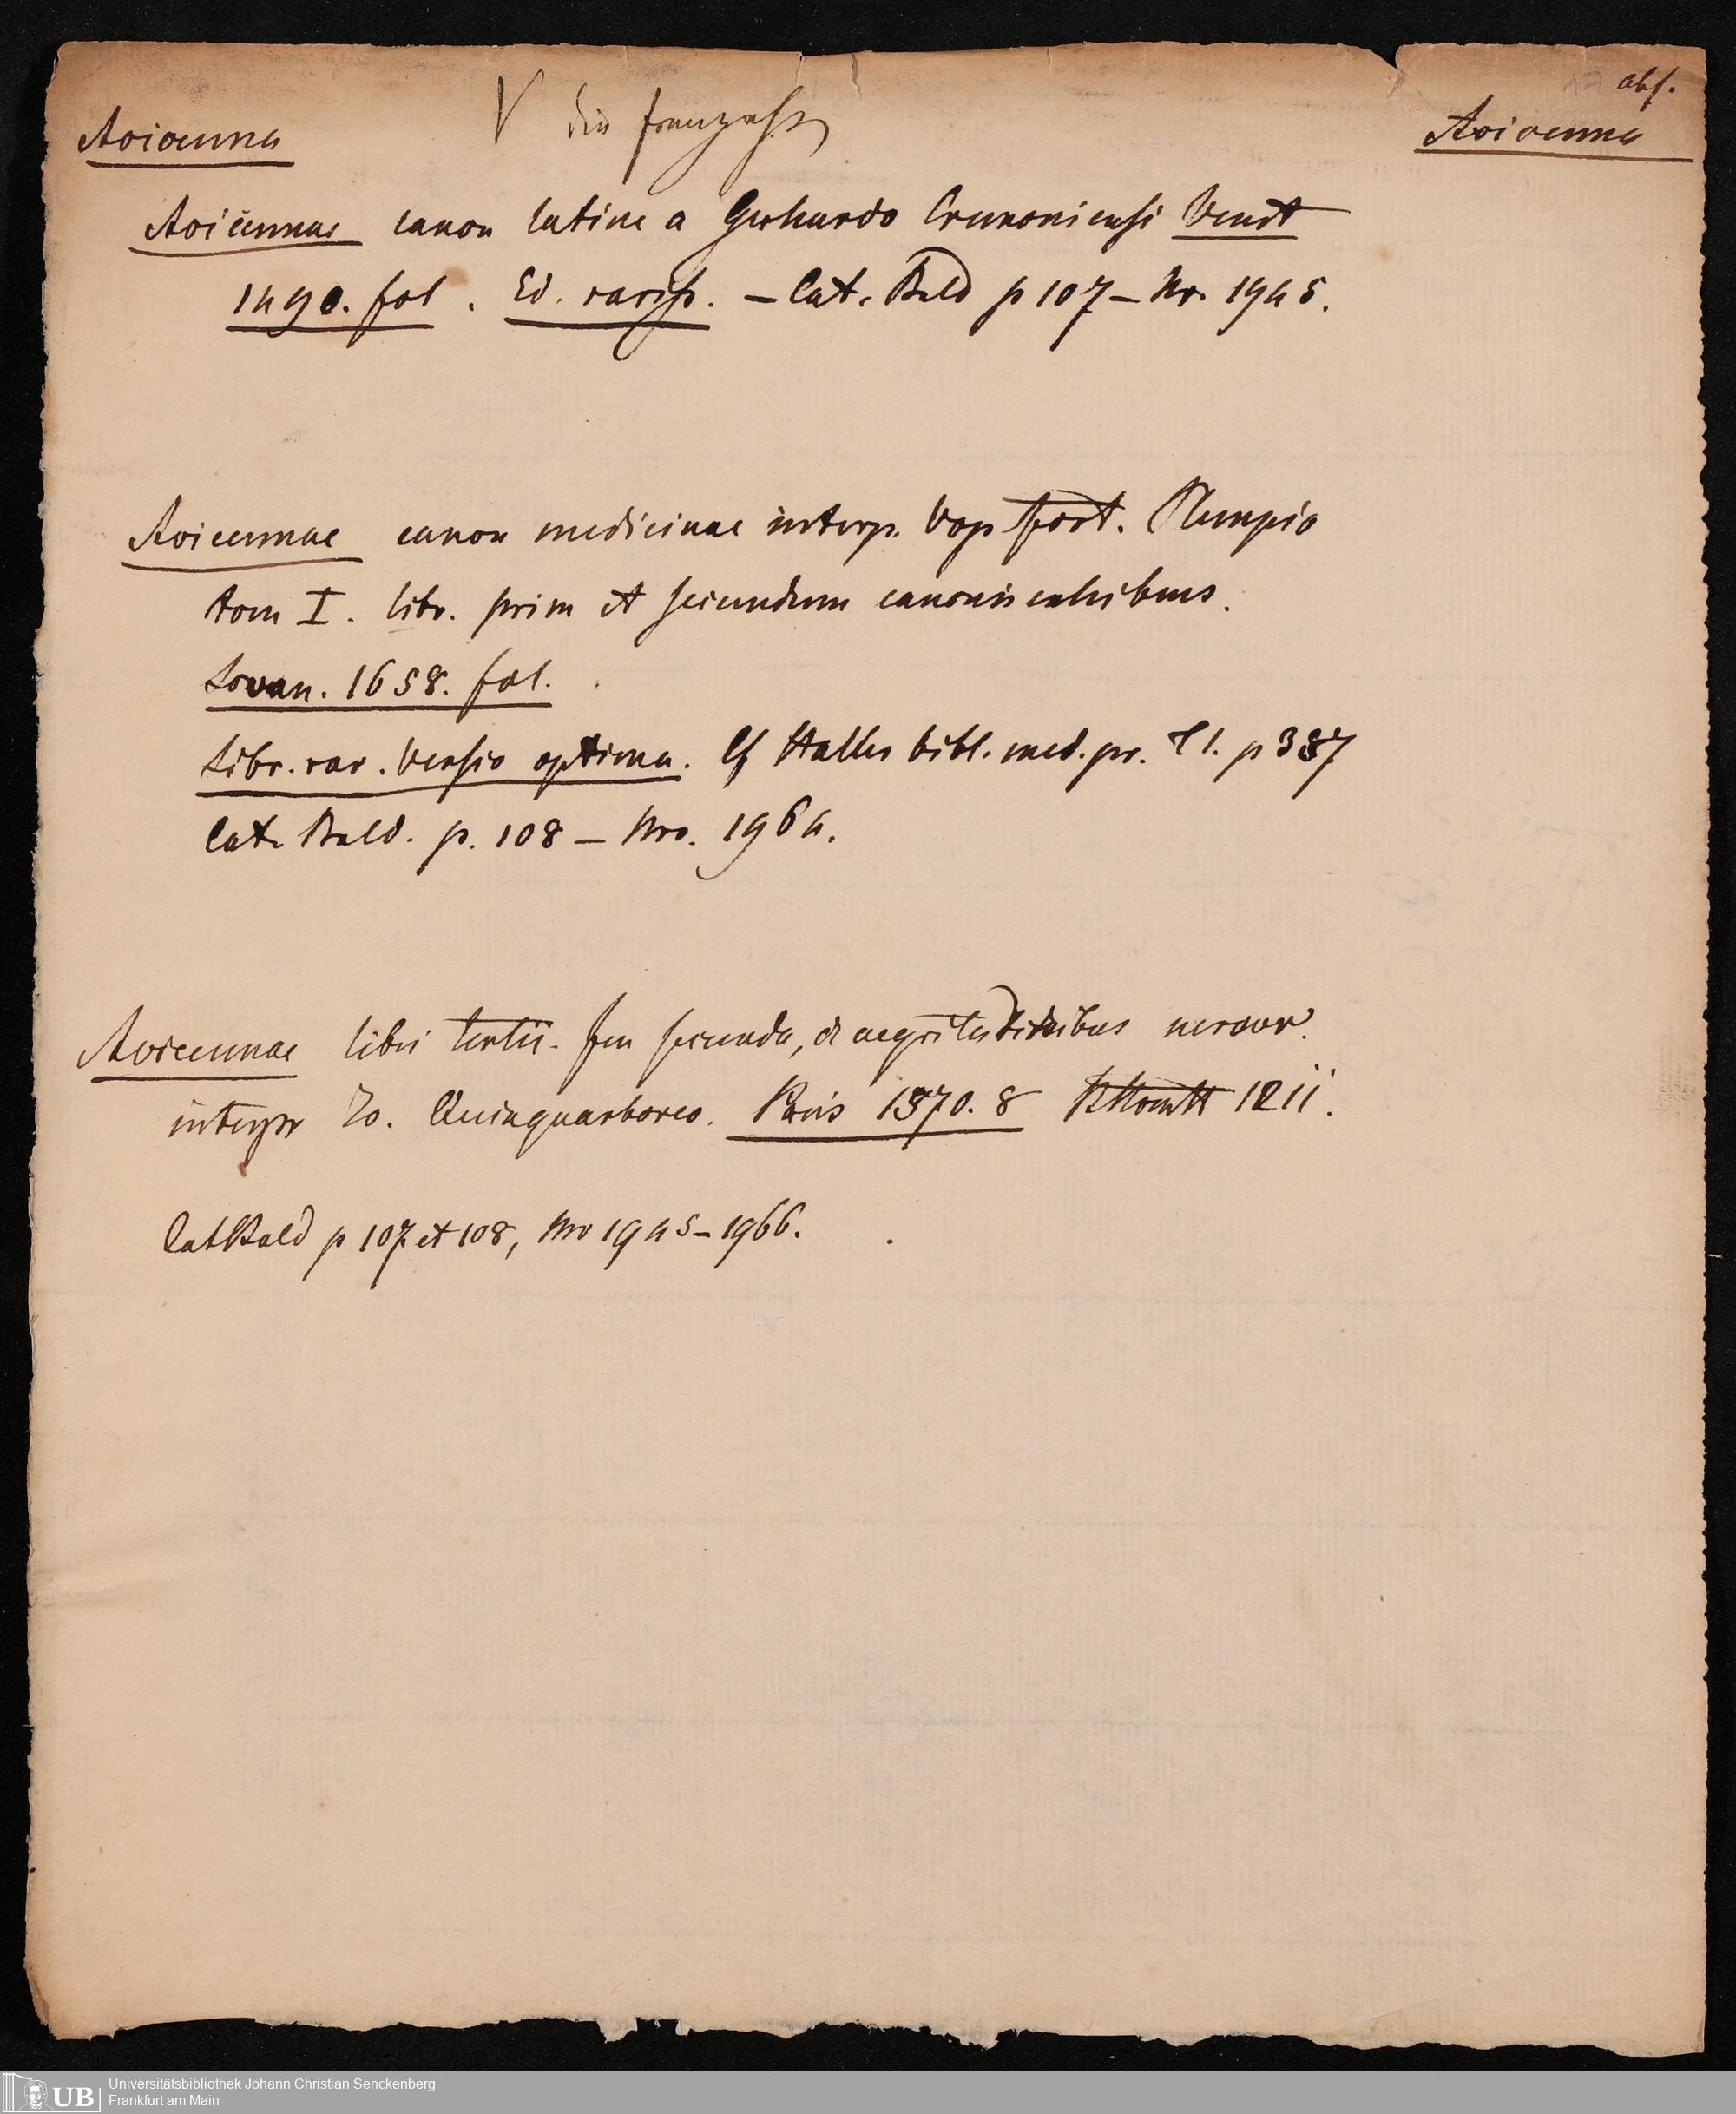 abs.
Avicenna
V die französ.
Avicenna
Avicennae canon latine a Gerhardo Cremoniensi Venet
1490. fol. Ed. rariss. – Cat. Bald p 107 – Nr. 1945.
Avicennae canon medicinae interp. Vop fort. Plempio
tom I. libr. prim et secundum canonis exhibens.
Lovan. 1658. fol.
Libr. rar. Versio optima. Cf Haller bibl. med. pr. T 1. p 387
Cat. Bald. p. 108 – Nro. 1964.
Avicennae libri tertii. fen secunda, de aegritudinibus nervor.
interpr Jo. Quinquarboreo. Paris 1570. 8 1211.
Cat Bald p 107 et 108, Nro 1945–1966.
UB
Universitätsbibliothek Johann Christian Senckenberg
Frankfurt am Main